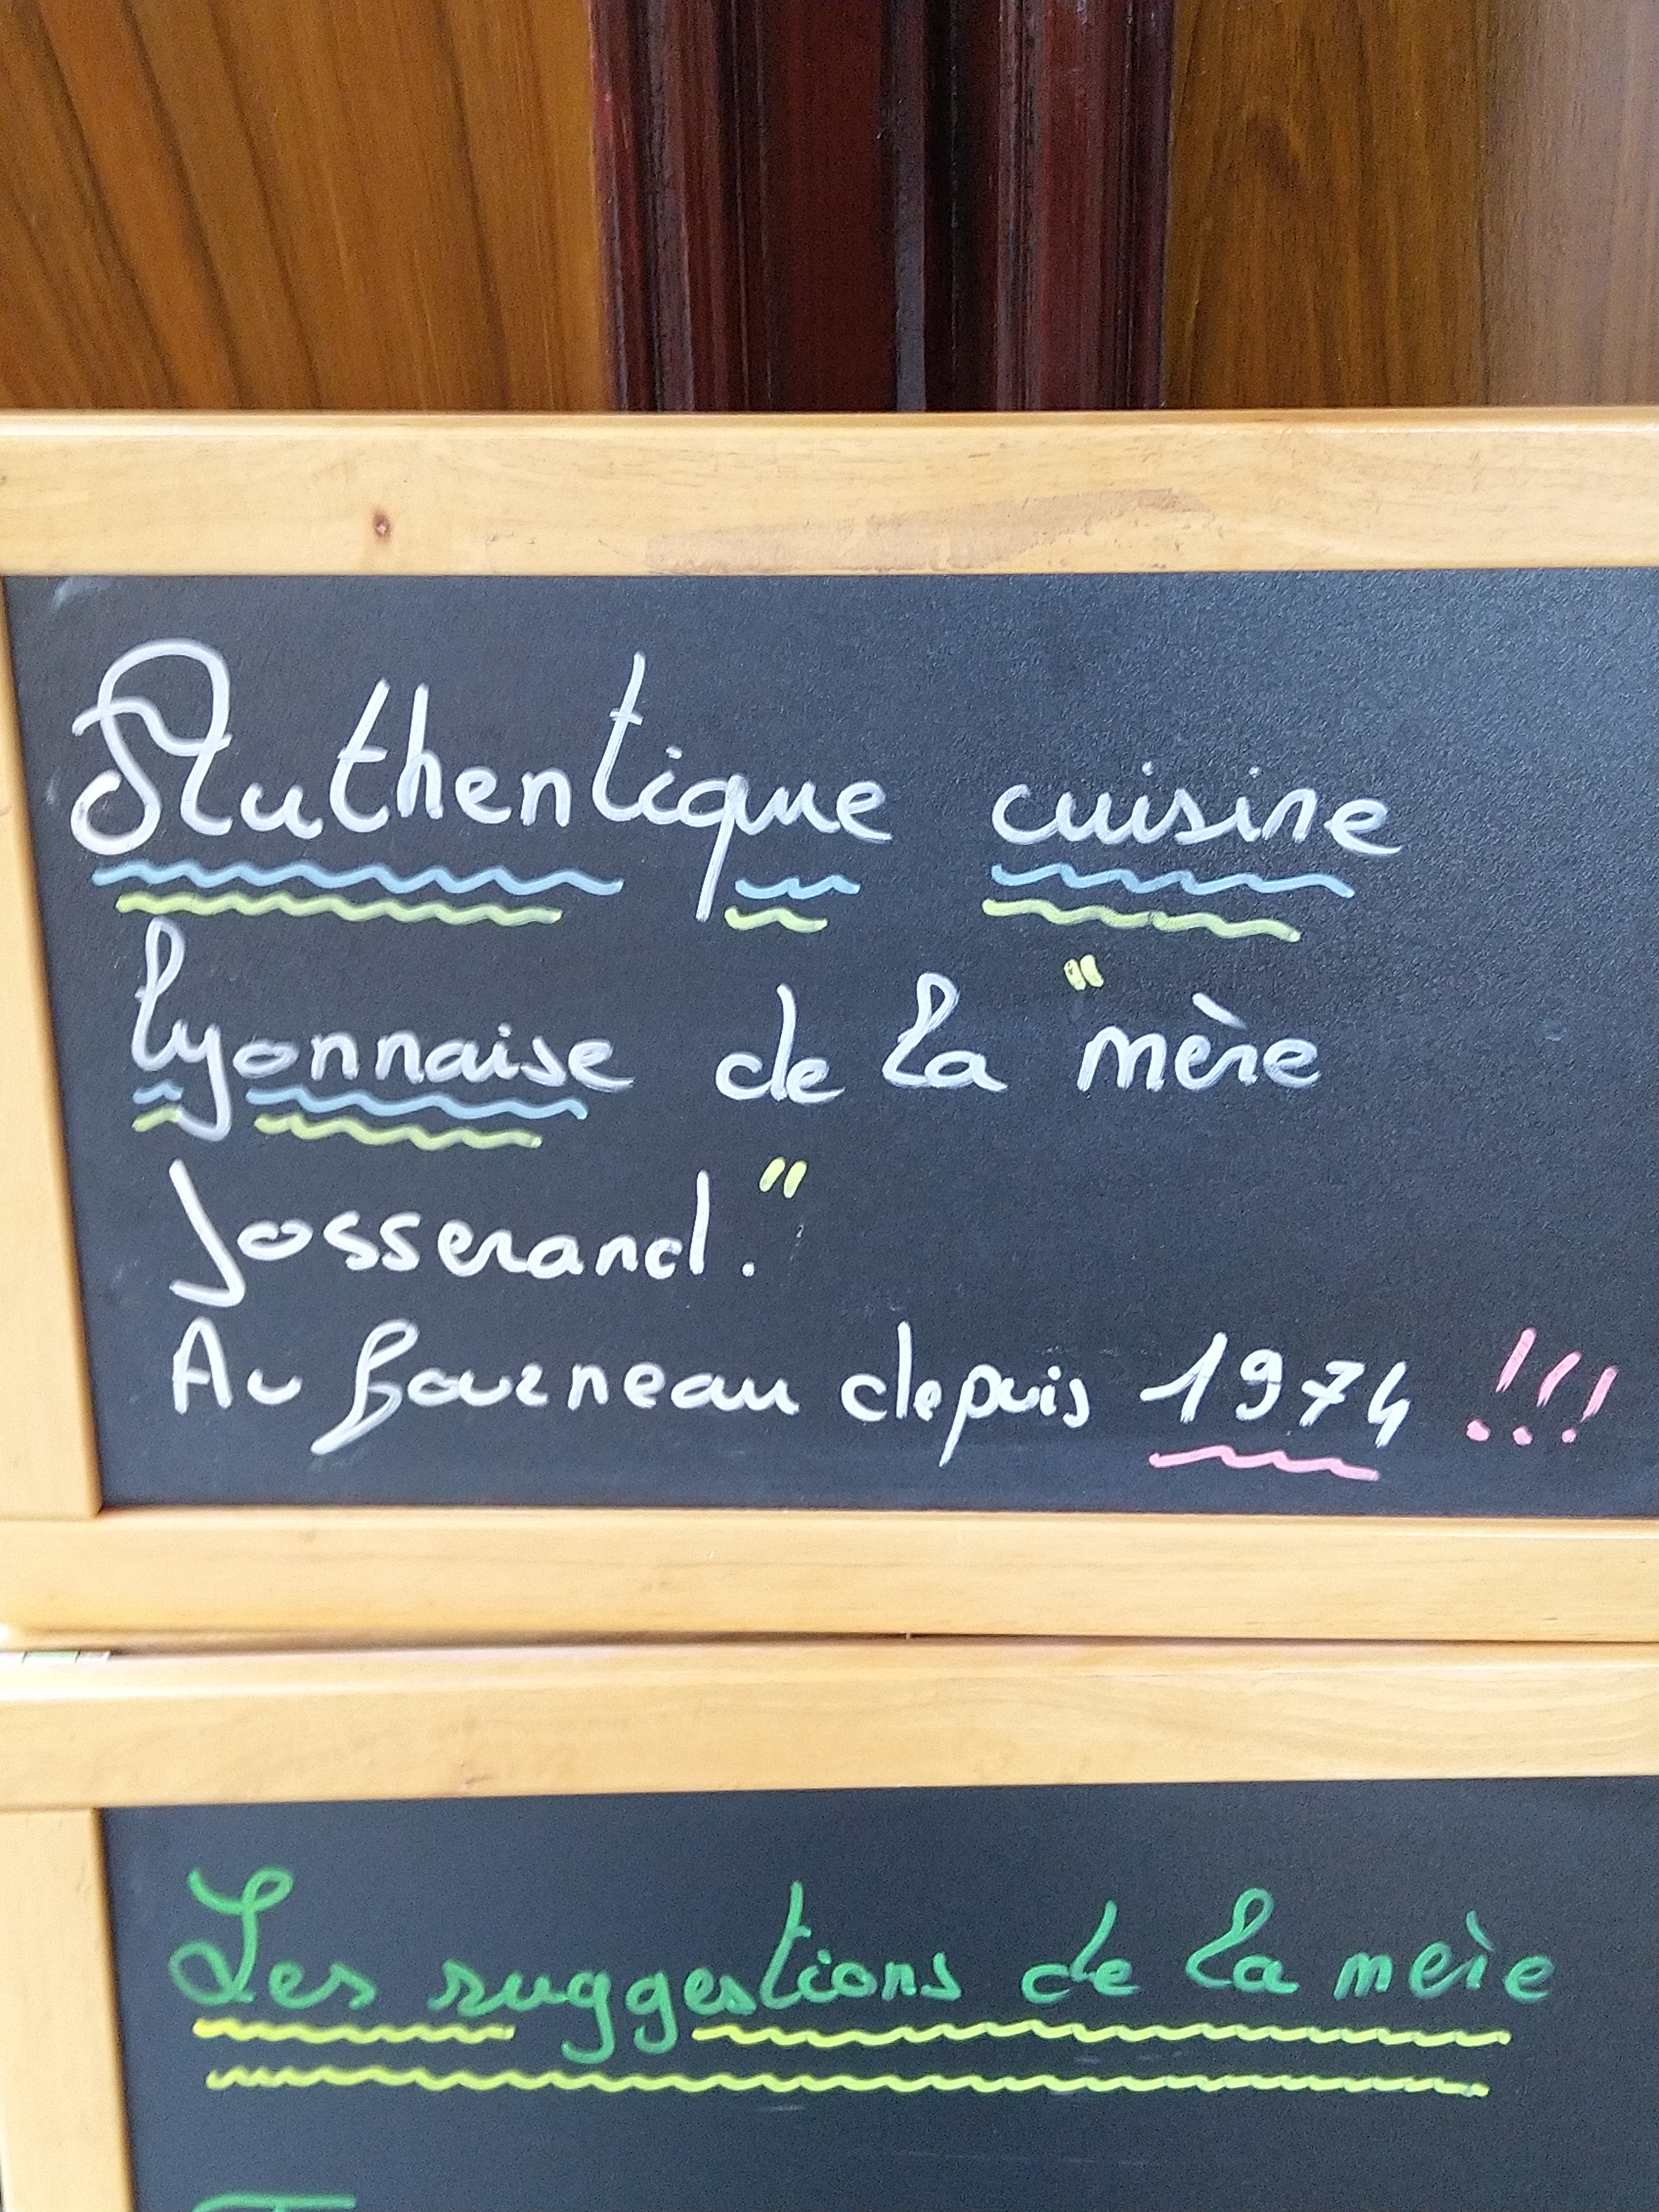 Authentique cuisine
lyonnaise de la "mère
Josserand."
Au fourneau depuis 1974 !!!
Les suggestions de la mère